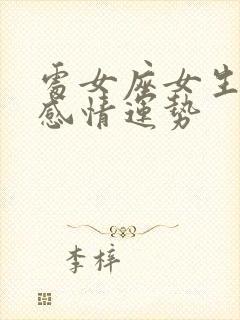 處女座女生
感情運勢
李梓